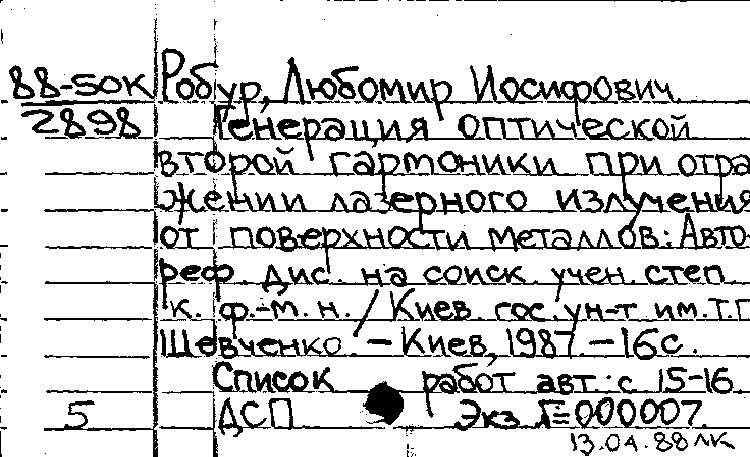 88-50К Робур, Любомир Иосифович.
2898 Генерация оптической
второй гармоники при отра
жении лазерного излучения
от поверхности металлов: Авто-
реф. дис. на соиск. учен. степ.
к. ф.-м. н. / Киев. гос. ун-т им. Т.Г.
Шевченко. – Киев, 1987. – 16 с.
Список работ авт.: с. 15-16.
5 ДСП Экз. №000007.
13.04.88 ЛК